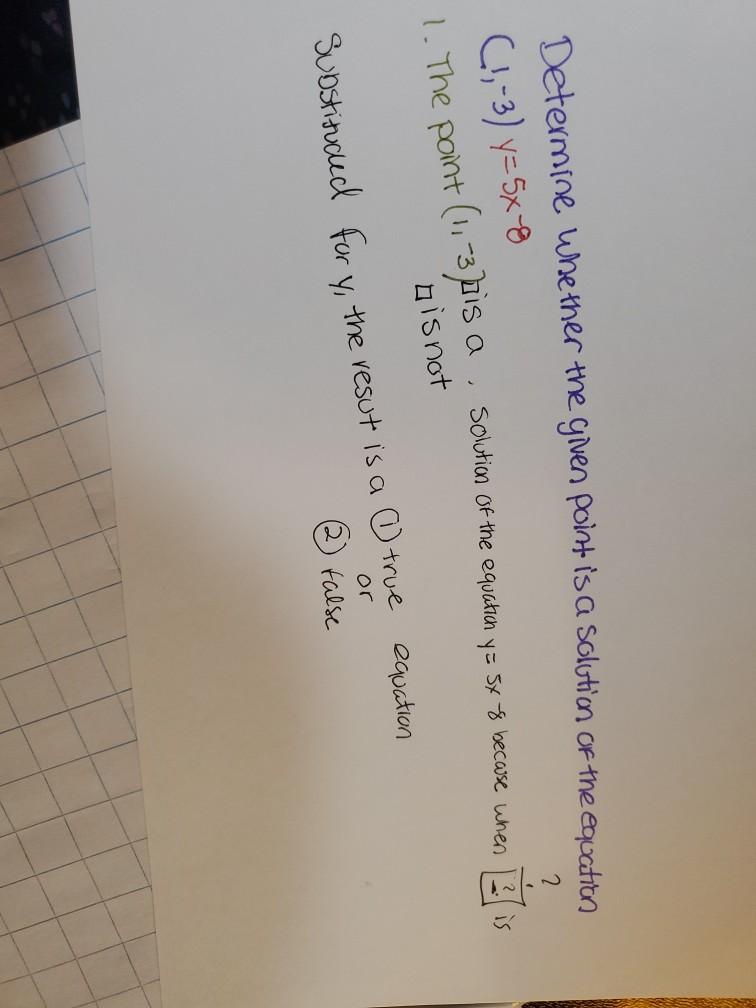 Determine whether the given point is a solution of the equation
(1,-3) y=5x-8 ?
1. The point (1,-3) □is a , solution of the equation y= 5x-8 because when [?] is
□is not
Substituded for y, the resut is a ① true equation
or
② false